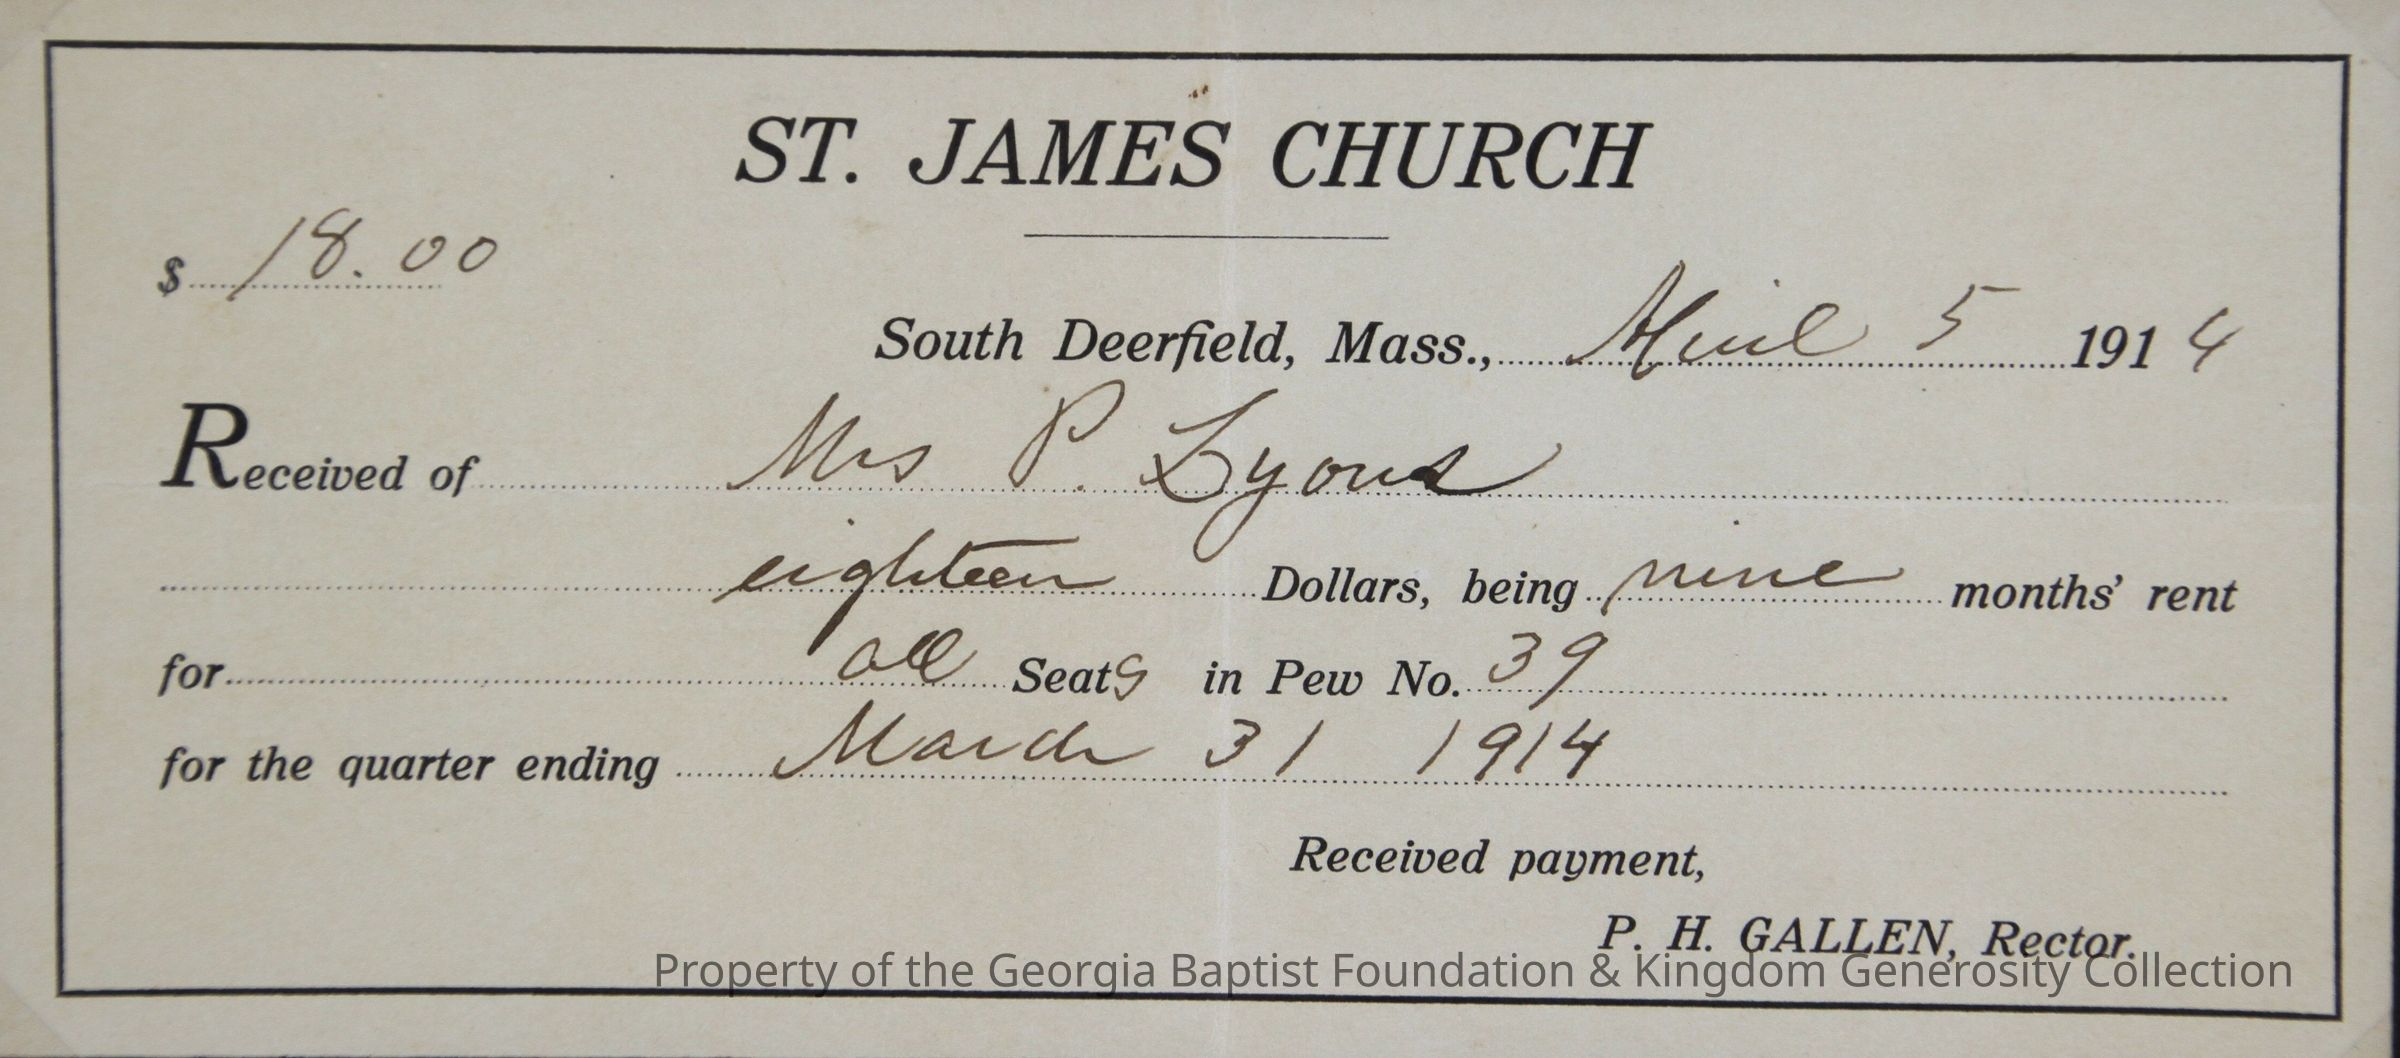 ST. JAMES CHURCH
$ 18.00
South Deerfield, Mass., April 5 1914
Received of Mrs P. Lyons
eighteen Dollars, being nine months' rent
for all Seats in Pew No. 39
for the quarter ending March 31 1914
Received payment,
P. H. GALLEN, Rector.
Property of the Georgia Baptist Foundation & Kingdom Generosity Collection